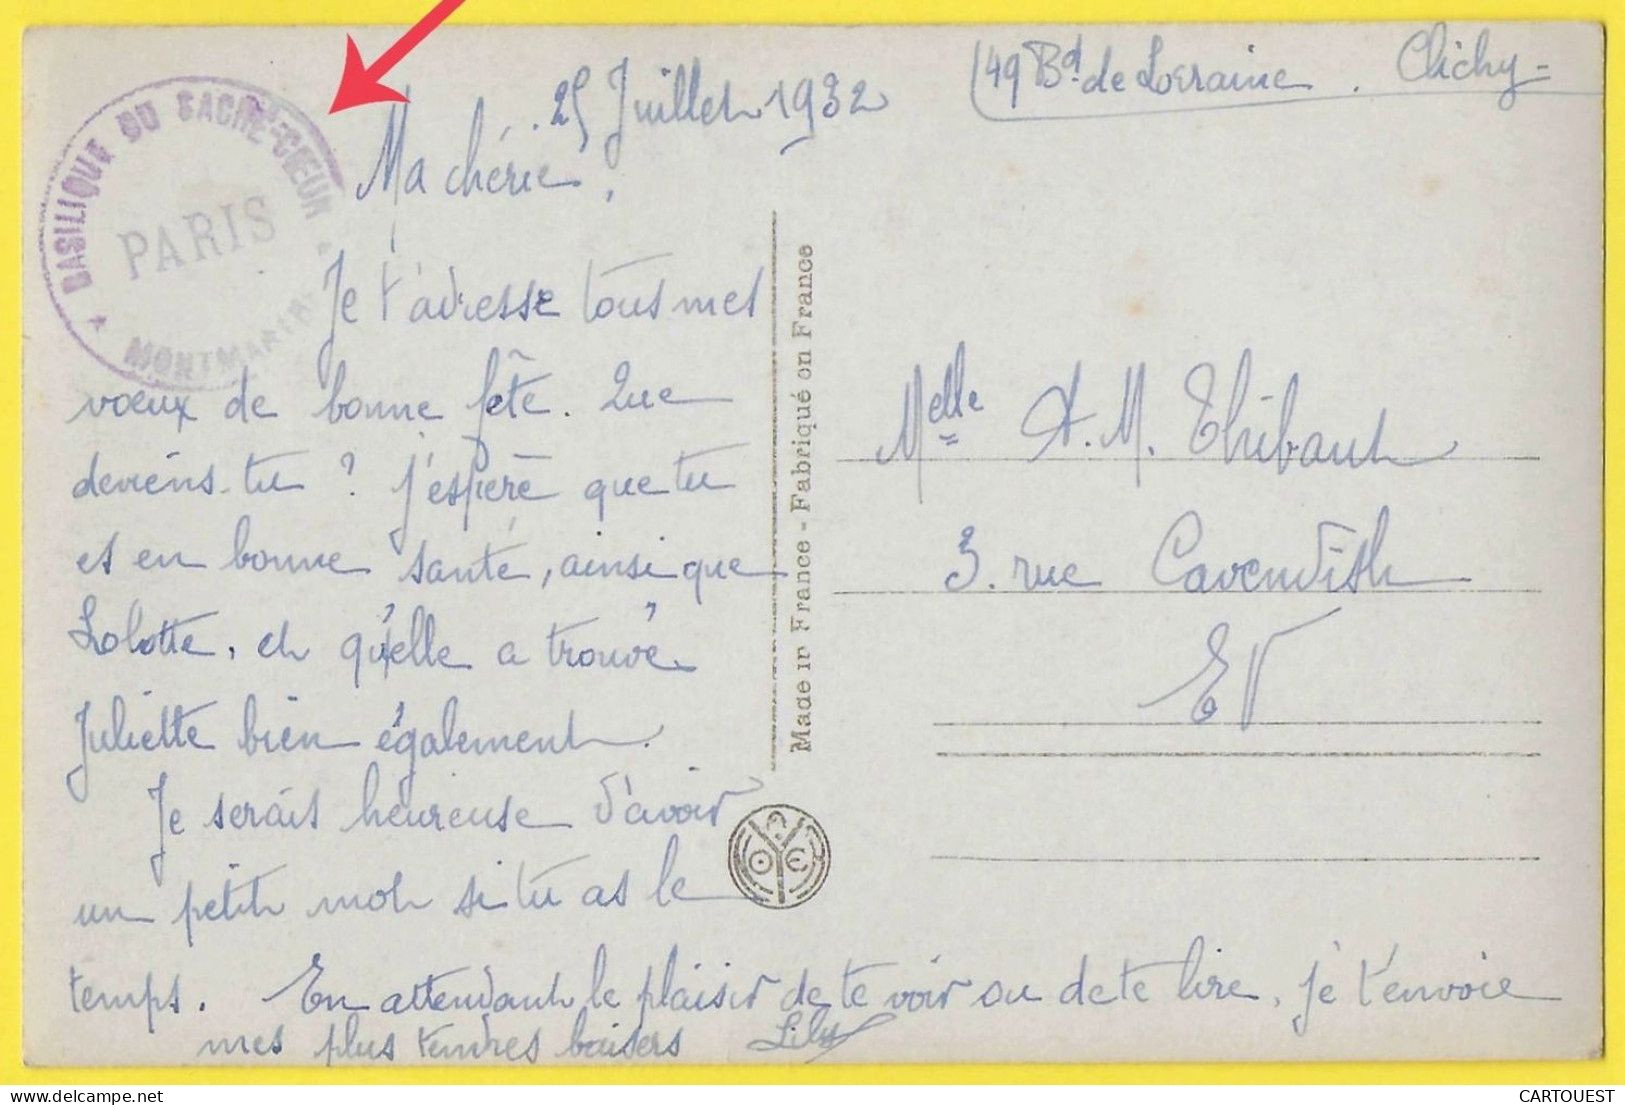 (49 Bd de Lorraine. Clichy =
BASILIQUE DU SACRÉ-CŒUR
PARIS
MONTMARTRE
25 Juillet 1932
Ma chérie,
Je t'adresse tous mes
vœux de bonne fête. Que
deviens-tu ? J'espère que tu
es en bonne santé, ainsi que
Lolotte, et qu'elle a trouvé
Juliette bien également.
Je serais heureuse d'avoir
un petit mot si tu as le
temps. En attendant le plaisir de te voir ou de te lire, je t'envoie
mes plus tendres baisers Lily
Made in France - Fabriqué en France
Melle A. M. Thibault
3. rue Cavendish
EV
CARTOUEST